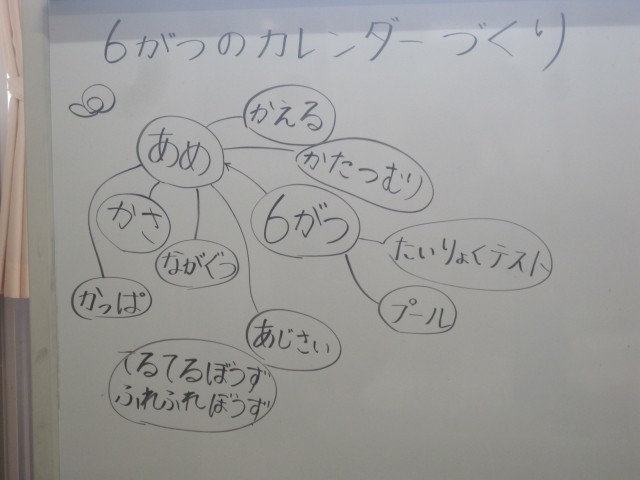 6がつのカレンダーづくり
かえる
あめ
かたつむり
かさ
6がつ
ながぐつ
たいりょくテスト
かっぱ
プール
あじさい
てるてるぼうず
ふれふれぼうず